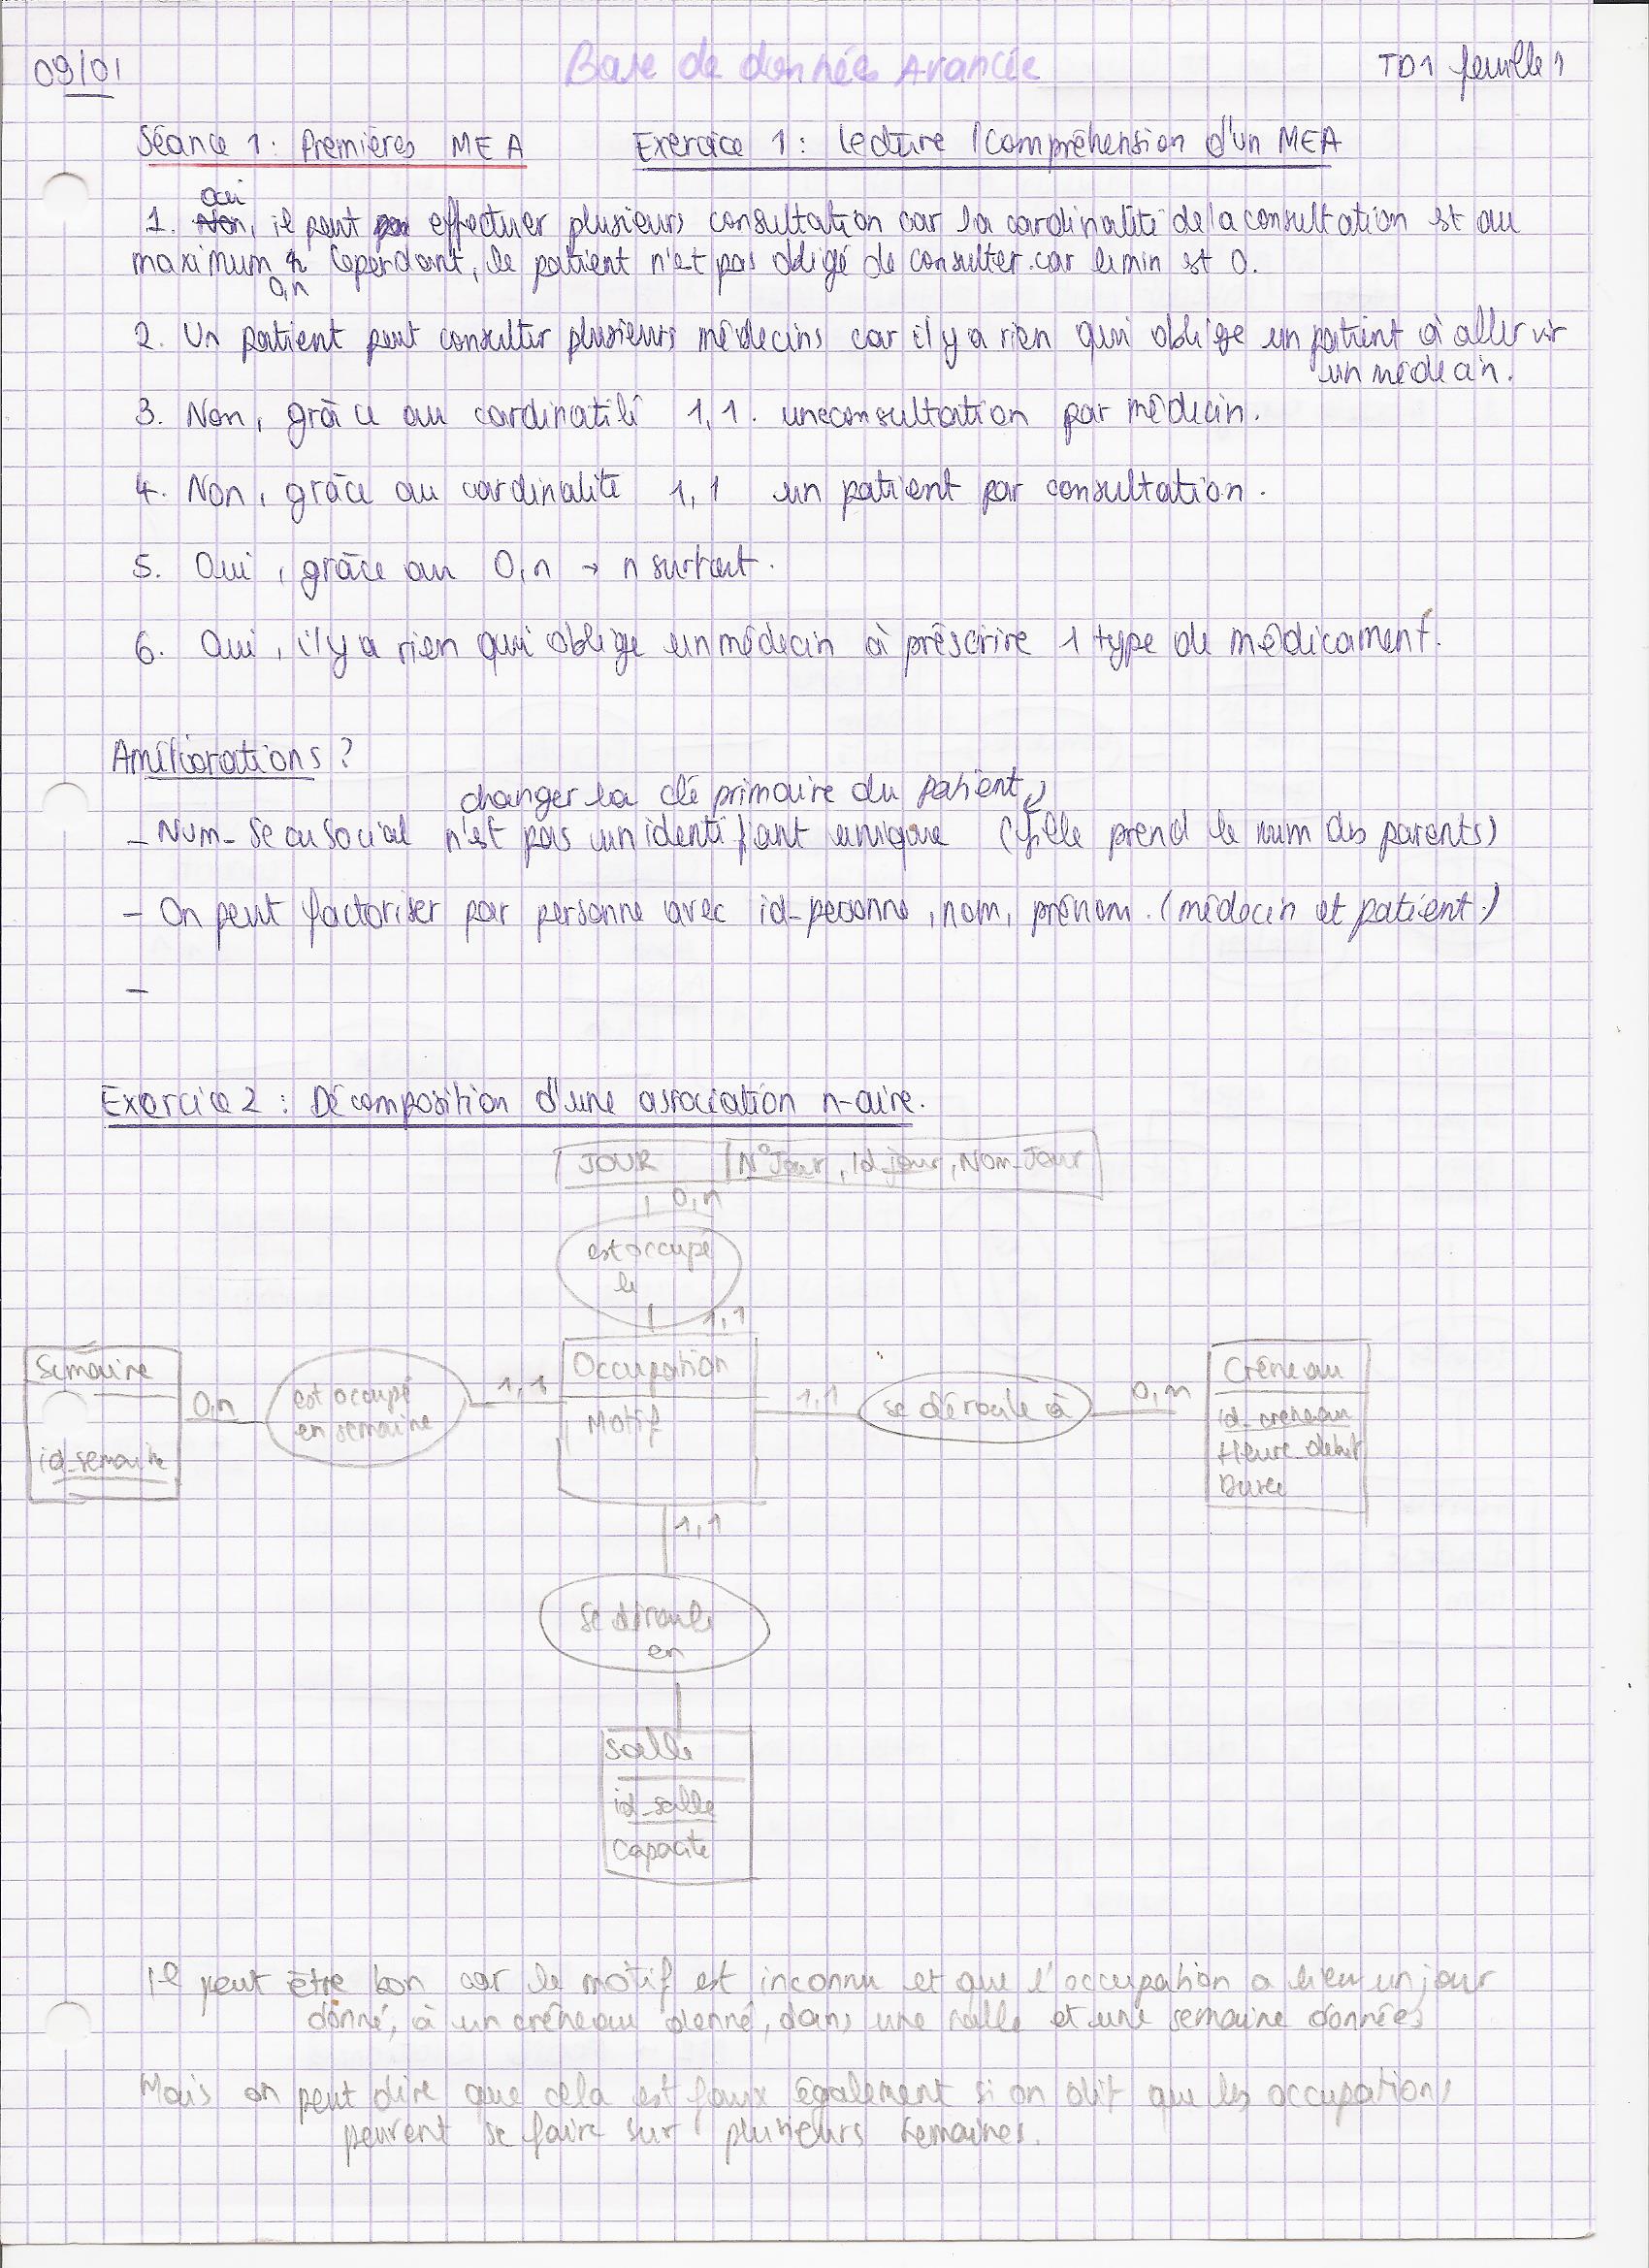 09/01
Base de donnée Avancée
TD1 feuille 1
Séance 1 : Premières MEA
Exercice 1 : lecture / Compréhension d'un MEA
oui
1. Non, il peut pas effectuer plusieurs consultation car la cardinalité de la consultation est au
maximum n Cependant, le patient n'est pas obligé de consulter car le min est 0.
0,n
2. Un patient peut consulter plusieurs médecins car il y a rien qui oblige un patient à aller vir
un médecin.
3. Non, grâce au cardinatilé 1,1. une consultation par médecin.
4. Non, grâce au cardinalité 1,1 un patient par consultation.
5. Oui, grâce au 0,n → n surtout.
6. Oui, il y a rien qui oblige un médecin à préscrire 1 type de médicament.
Améliorations ?
changer la clé primaire du patient
- Num_Secu Social n'est pas un identifiant unique (fille prend le num des parents)
- On peut factoriser par personne avec id-personne, nom, prénom. (médecin et patient.)
-
Exercice 2 : Décomposition d'une association n-aire.
JOUR N°Jour, Id_jour, Nom_Jour
0,n
est occupé
le
1,1
Semaine
id_semaine
0,n
est occupé
en semaine
1,1
Occupation
Motif
1,1
se déroule à
0,n
Créneau
id_creneau
Heure_debut
Durée
1,1
Se déroule
en
Salle
id_salle
Capacité
Il peut être bon car le motif est inconnu et que l'occupation a lieu un jour
donné, à un créneau donné, dans une salle et une semaine données
Mais on peut dire que cela est faux également si on dit que les occupations
peuvent se faire sur plusieurs semaines.